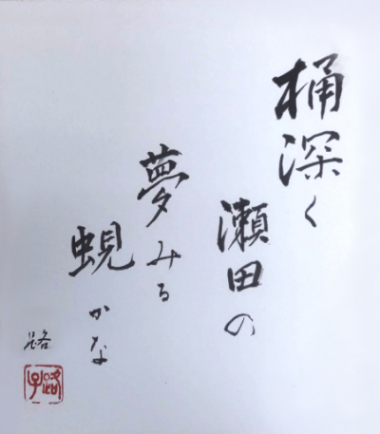 桶深く
瀬田の
夢みる
蜆かな
路